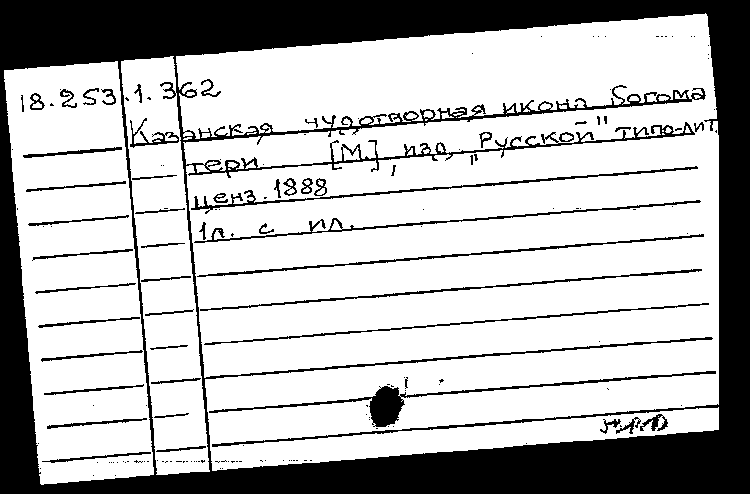 18.253.1.362
Казанская чудотворная икона Богома
тери [М.], изд. „Русской" типо-лит.
ценз. 1888
1л. с ил.